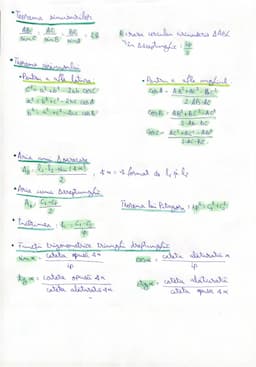 • Teorema sinusurilor
AB/sin C = AC/sin B = BC/sin A = 2R
R = raza cercului circumscris ΔABC
în Δdreptunghic: ip/2
• Teorema cosinusului
• Pentru a afla latura
c² = a² + b² - 2ab · cos C
a² = b² + c² - 2bc · cos A
b² = a² + c² - 2ac · cos B
• Pentru a afla unghiul
cos A = (AB² + AC² - BC²)/(2·AB·AC)
cos B = (AB² + BC² - AC²)/(2·AB·BC)
cos C = (AC² + BC² - AB²)/(2·AC·BC)
• Aria unui Δ oarecare
A = l₁ · l₂ · sin(∢α)/2, ∢α = ∢ format de l₁ și l₂
• Aria unui Δdreptunghic
A = C₁ · C₂/2
Teorema lui Pitagora: ip² = C₁² + C₂²
• Înălțimea: C₁ · C₂/ip
• Funcții trigonometrice triunghi dreptunghic
sin α = cateta opusă ∢α/ip
cos α = cateta alăturată α/ip
tg α = cateta opusă ∢α/cateta alăturată ∢α
ctg α = cateta alăturată/cateta opusă ∢α